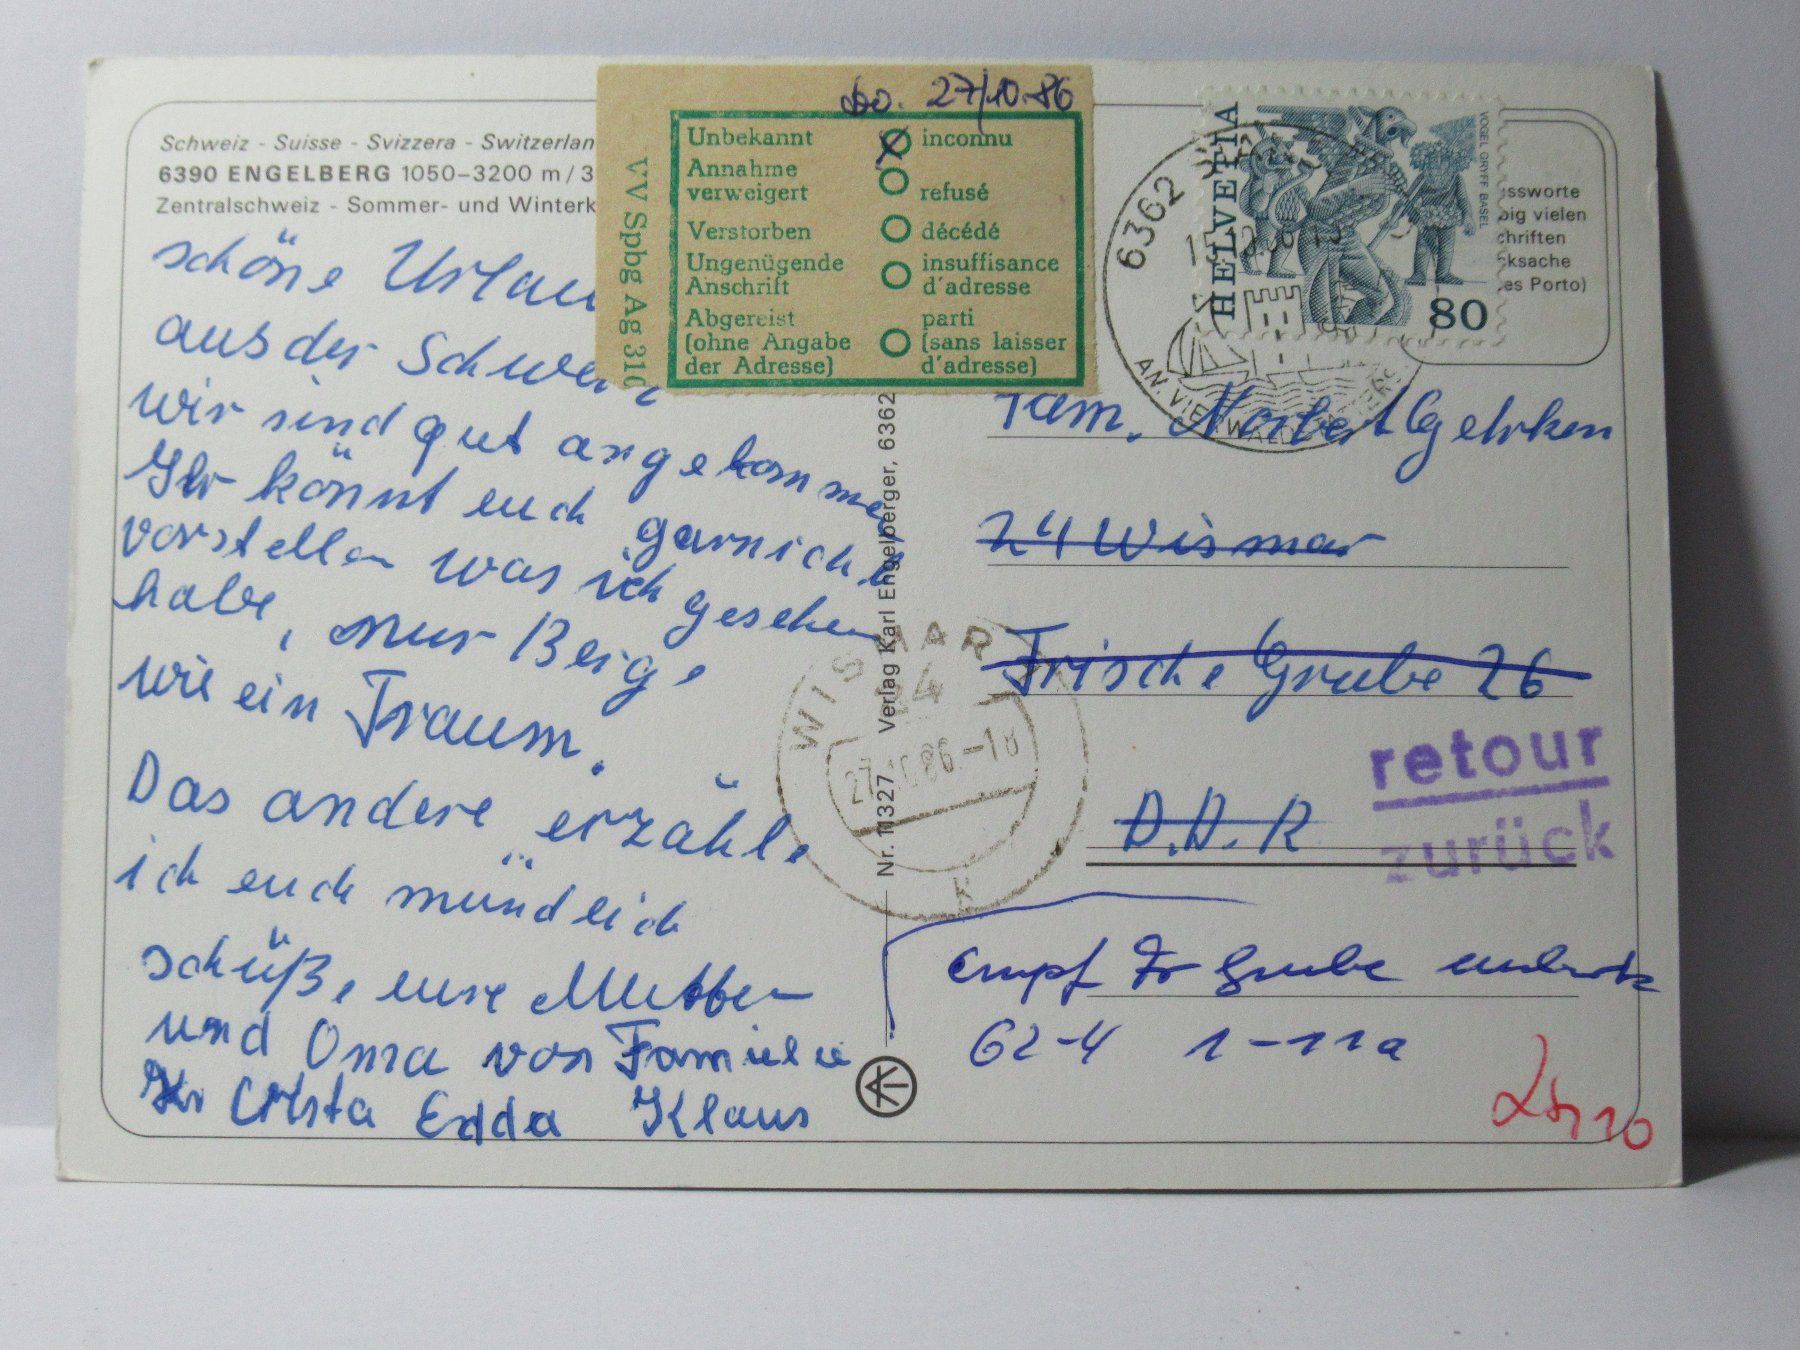 Schweiz - Suisse - Svizzera - Switzerlan
6390 ENGELBERG 1050–3200 m / 3
Zentralschweiz - Sommer- und Winterk
schöne Urlau
aus der Schwei
wir sind gut angekommen
Ihr könnt euch garnicht
vorstellen was ich gesehen
habe, nur Berge
wie ein Traum.
Das andere erzähle
ich euch mündlich
schüße eure Mutter
und Oma von Familie
Christa Edda Klaus
27/10.86
VV Spbg Ag 310
Unbekannt inconnu
Annahme
verweigert refusé
Verstorben décédé
Ungenügende insuffisance
Anschrift d'adresse
Abgereist parti
(ohne Angabe (sans laisser
der Adresse) d'adresse)
HELVETIA
VOGEL GRYFF BASEL
80
6362
AN VIERWALD
ssworte
big vielen
chriften
cksache
es Porto)
Fam. Norbert Gehrken
24 Wismar
Frische Grube 26
D.D.R
retour
zurück
WISMAR
24
27.10.86.-18
k
Nr. 11327 Verlag Karl Engelberger, 6362
Empf Fr Grube unbek
62-4 1-11a